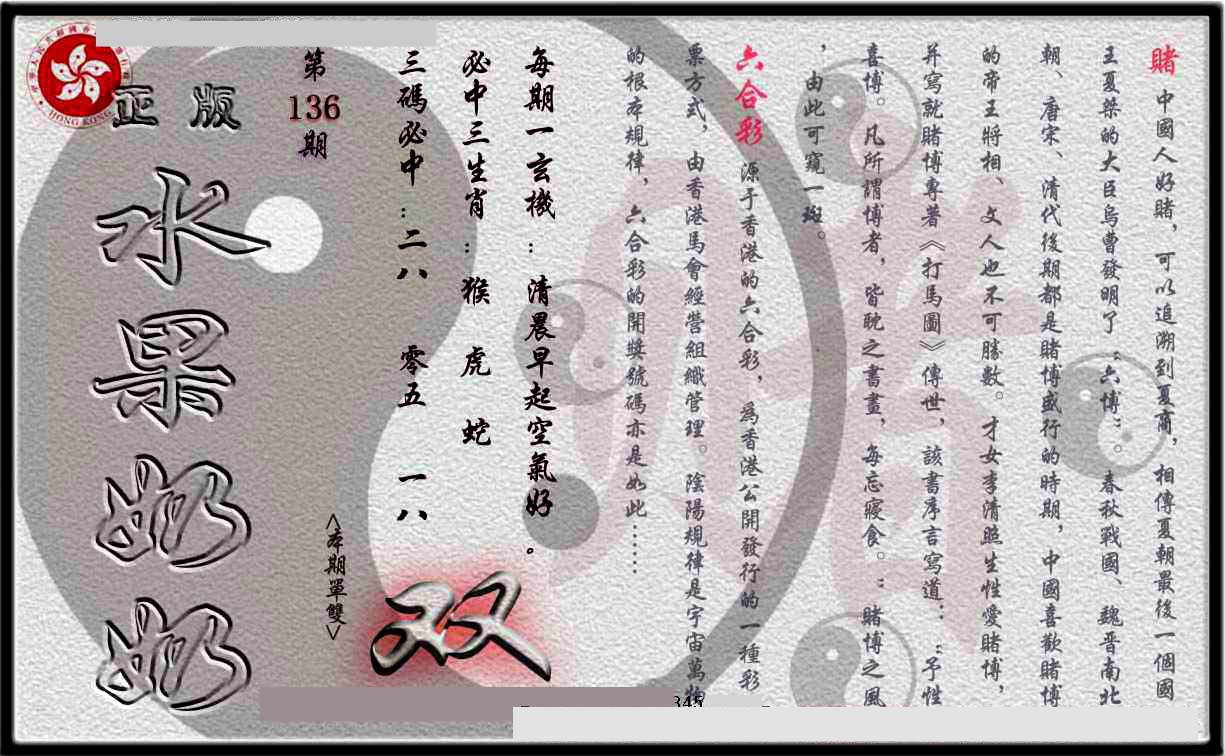 賭 中國人好賭，可以追溯到夏商，相傳夏朝最後一個國
王夏桀的大臣烏曹發明了“六博”。春秋戰國、魏晋南北
朝、唐宋、清代後期都是賭博盛行的時期，中國喜歡賭博
的帝王將相、文人也不可勝數。才女李清照生性愛賭博，
并寫就賭博專著《打馬圖》傳世，該書序言寫道：“予性
喜博。凡所謂博者，皆耽之晝夜，每忘寢食。”賭博之風
，由此可窺一斑。
六合彩 源于香港的六合彩，為香港公開發行的一種彩
票方式，由香港馬會經營組織管理。陰陽規律是宇宙萬物
的根本規律，六合彩的開獎號碼亦是如此……
每期一玄機：清晨早起空氣好。
必中三生肖：猴 虎 蛇
三碼必中：二八 零五 一八
第
136
期
<本期單雙>
双
正版
水果奶奶
HONG KONG
345